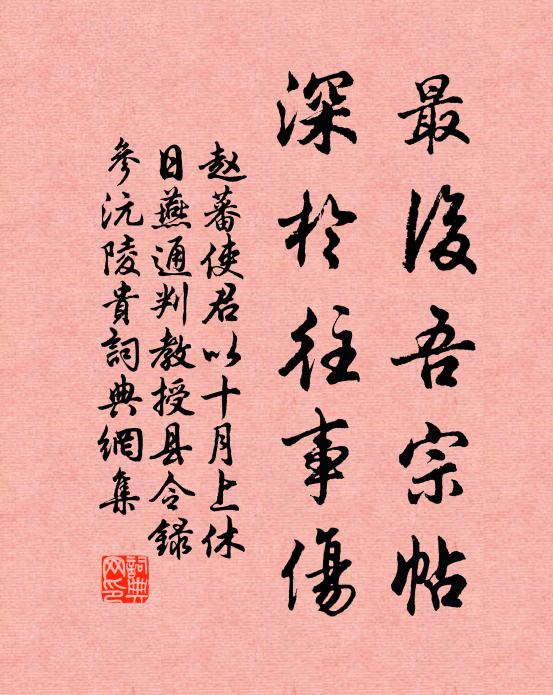 最後吾宗帖
深於往事傷
赵蕃使君以十月上休
日燕通判教授县令録
參沅陵貴詞典網集
詞典
网印